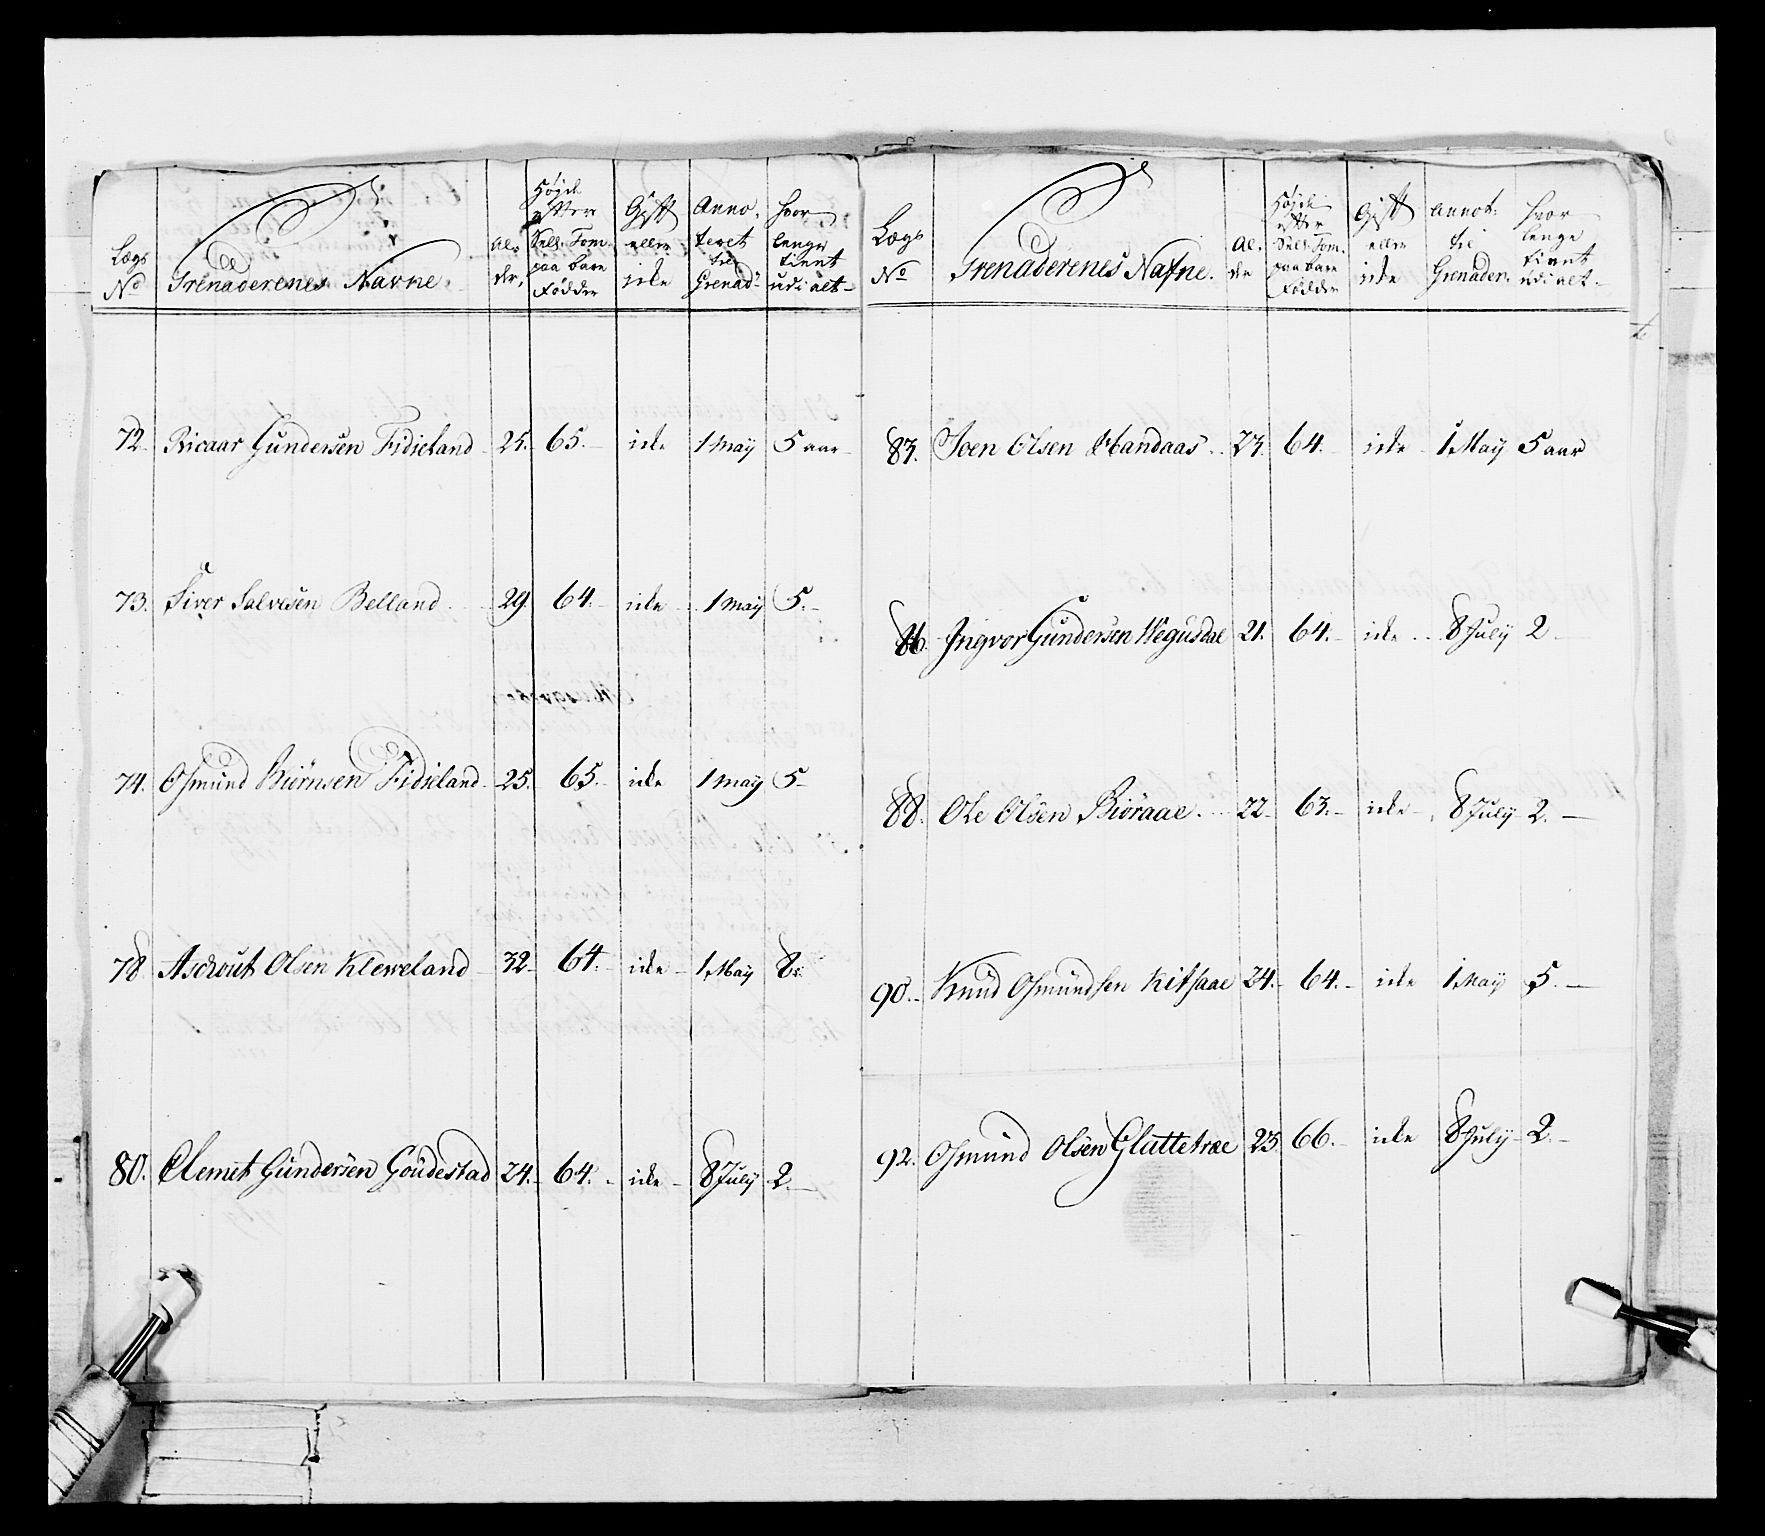 Lægs No | Grenaderenes Navne | Al- der. | Høyde efter Sell. Tom. paa bare Fødder | Gift eller icke | Anno- teret til Grenad. | Hvor lenge tient udi alt
72. Ricaar Gundersen Fidieland 25. 65. icke 1 May 5 aar
73. Siver Salvesen Belland 29. 64. icke 1 May 5.
74. Osmund Biörnsen Fidieland 25. 65. icke 1 May 5
78 Aschout Olsen Kleweland 32. 64. icke 1 May 8.
80. Clemet Gundersen Goudestad 24. 64. icke 8 July 2.
Lægs No | Grenaderenes Nafne. | Al- der | Høyde efter Sell. Tom. paa bare Fødder | Gift eller icke | Annot: til Grenader. | Hvor lenge tient udi alt
83. Joen Olsen Handaas 23. 64. icke 1 May 5 aar
86. Ingvor Gundersen Hegusdal 21. 64. icke 8 July 2
88. Ole Olsen Biöraae. 22. 63. icke 8 July 2.
90. Knud Osmundsen Kitsaae 24. 64. icke 1 May 5.
92. Osmund Olsen Glattetræ 23. 66. icke 8 July 2.